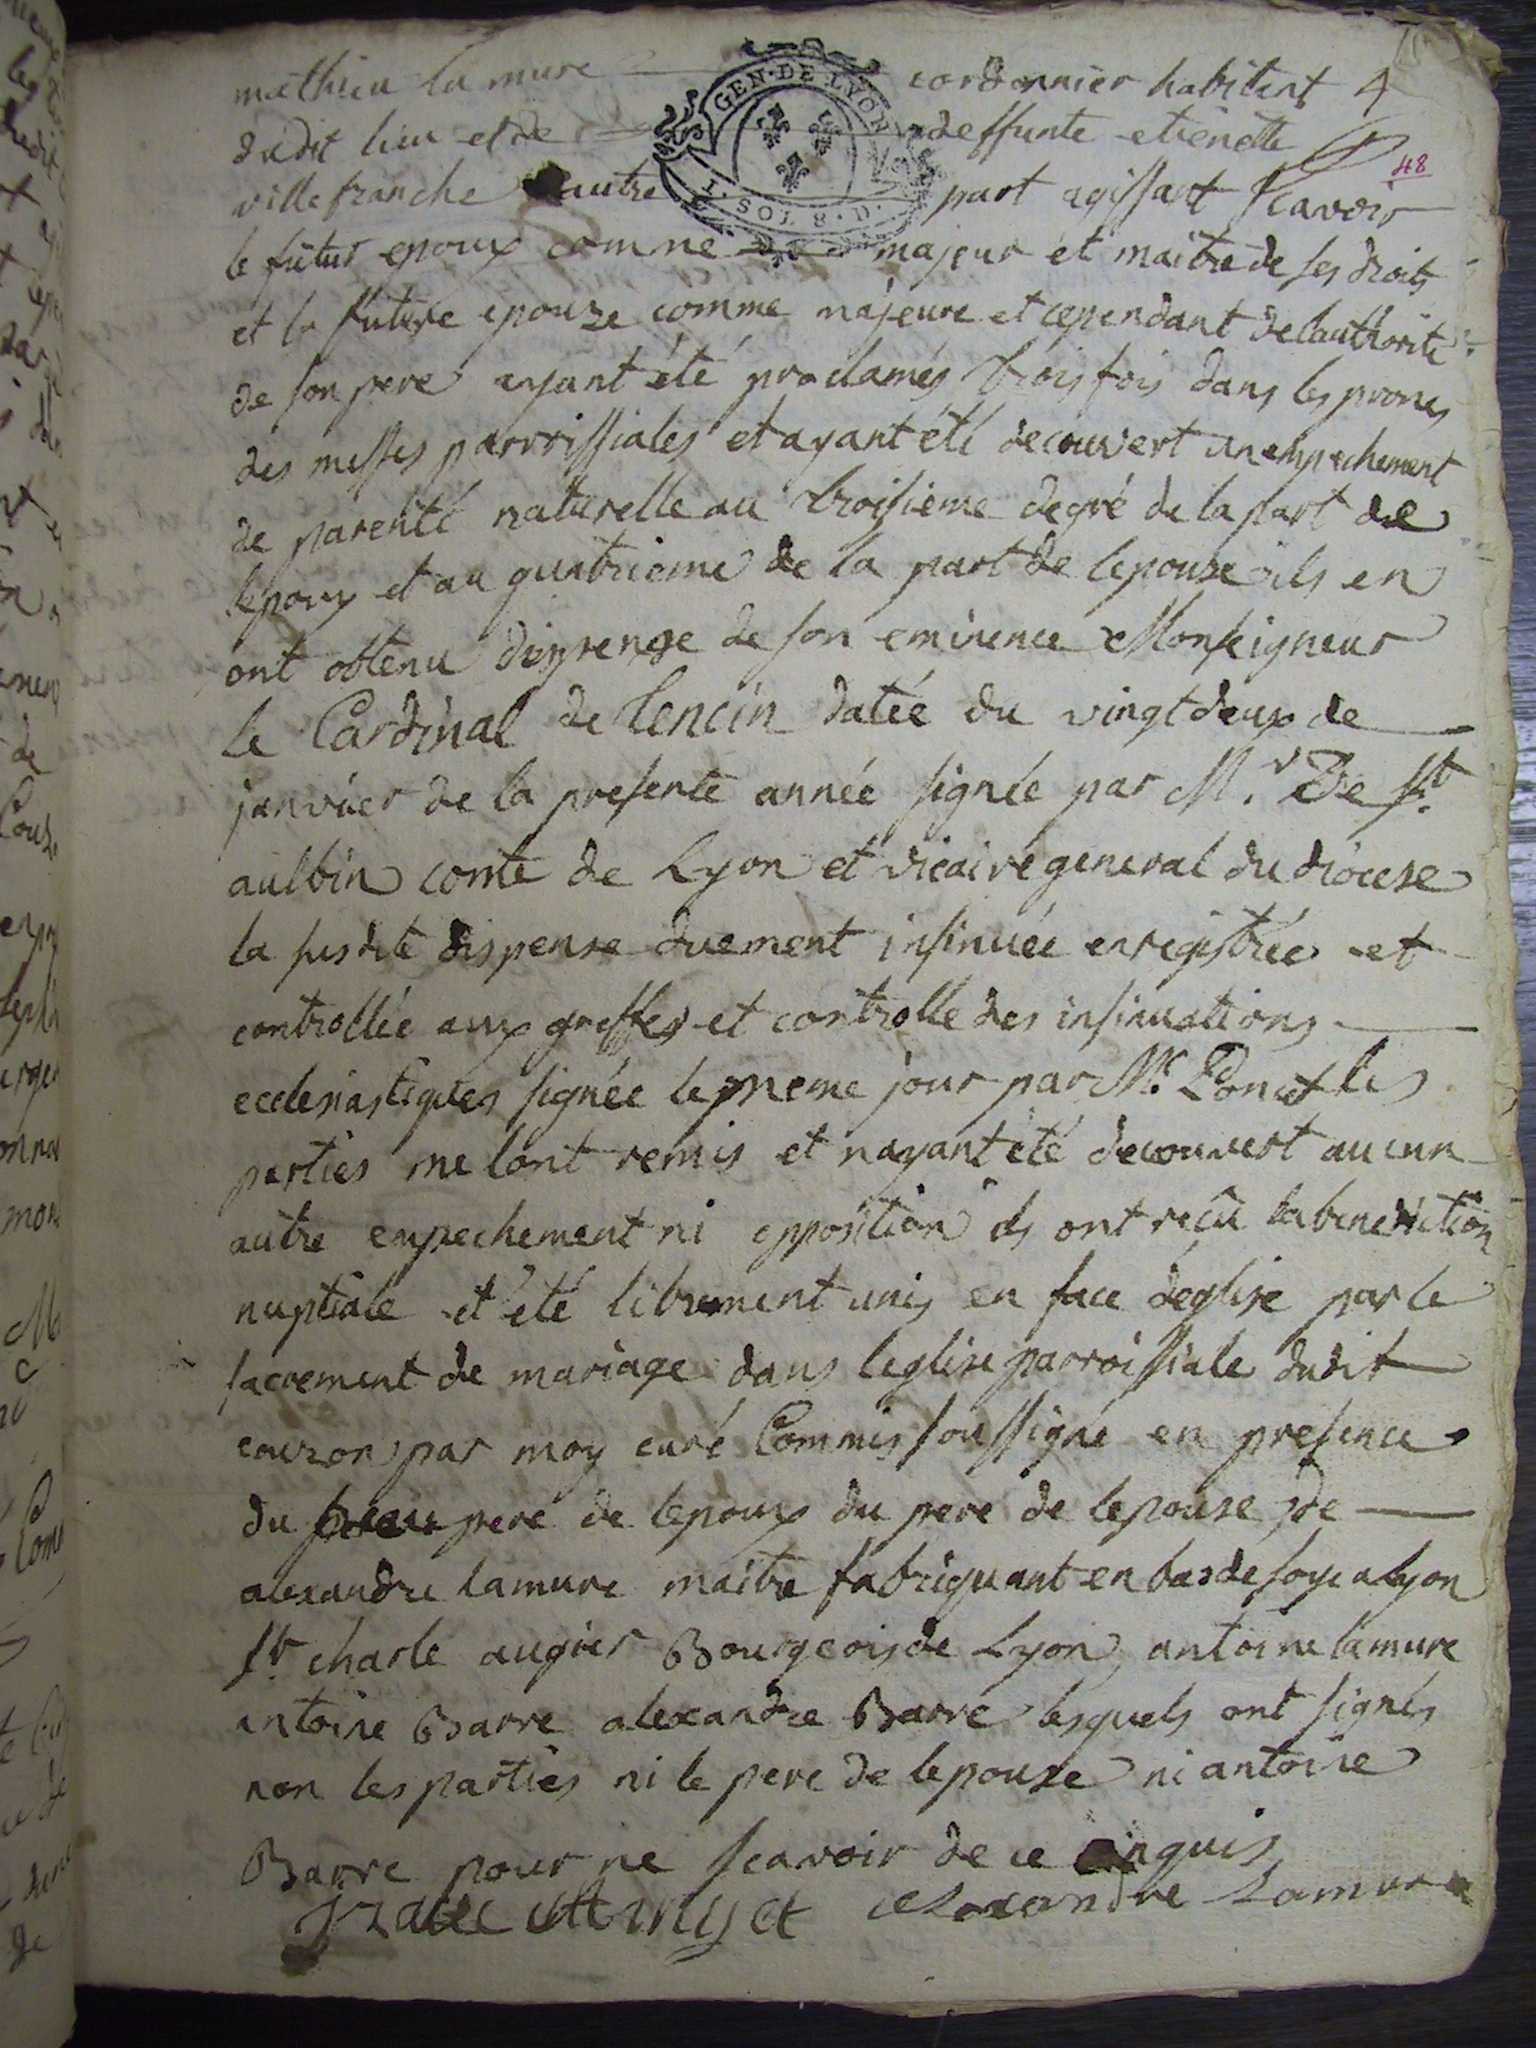 mathieu la mure cordonnier habitent 4
dudit lieu et de deffunte etienette
48
villefranche autre part agissant scavoir
GEN · DE LYON
1 · SOL 8 · D ·
le futur epoux comme majeur et maitre de ses droits
et la future epouze comme majeure et cependant de lauthorite
de son pere ayant été proclamés trois fois dans les prones
des messes parroissiales et ayant été decouvert un empechement
de parenté naturelle au troisieme degré de la part de
lepoux et au quatrieme de la part de lepouze ils en
ont obtenu dispense de son eminence Monseigneur
le Cardinal de Tencin datée du vingt deux de
janvier de la presente année signée par Mr De st
aulbin comte de Lyon et vicaire general du diocese
la susdite dispense duement insinuée enregistrée et
controllée aux greffes et controlle des insinuations
ecclesiastiques signée le meme jour par Mr Poncet les
parties me lont remis et nayant été decouvert aucun
autre empechement ni opposition ils ont reçu la benediction
nuptiale et été librement unis en face deglise par le
sacrement de mariage dans leglise parroissiale dudit
couzon par moy curé Commis soussigné en presence
du pere de lepoux du pere de lepouse de
alexandre lamure maitre fabriquant en bas de soye a Lyon
sr charle augier Bourgeois de Lyon, antoine lamure
antoine Barre alexandre Barre lesquels ont signés
non les parties ni le pere de lepouze ni antoine
Barre pour ne scavoir de ce enquis
alexandre Lamure